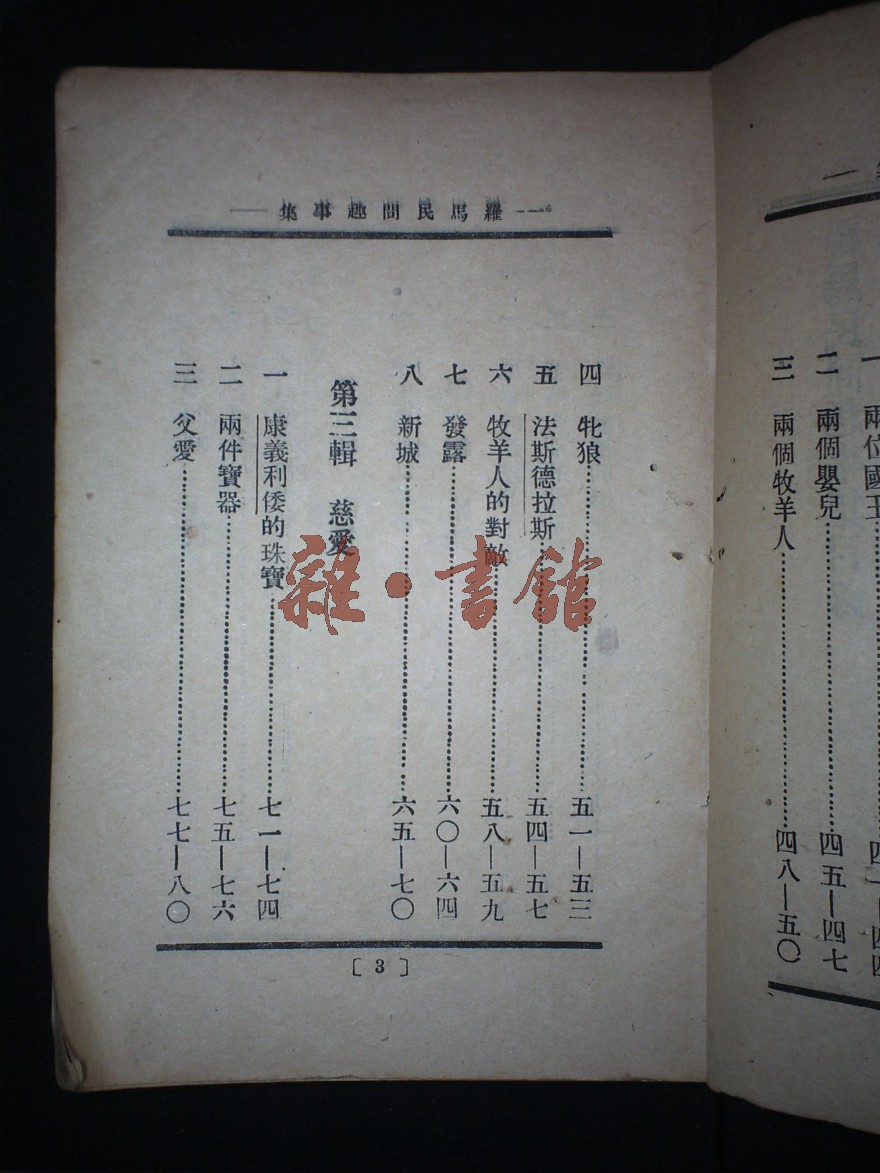 羅馬民間趣事集
一 兩位國王……四一—四四
二 兩個嬰兒……四五—四七
三 兩個牧羊人……四八—五〇
四 牝狼……五一—五三
五 法斯德拉斯……五四—五七
六 牧羊人的對敵……五八—五九
七 發露……六〇—六四
八 新城……六五—七〇
第三輯 慈愛
一 康義利倭的珠寶……七一—七四
二 兩件寶器……七五—七六
三 父愛……七七—八〇
〔3〕
雜·書館